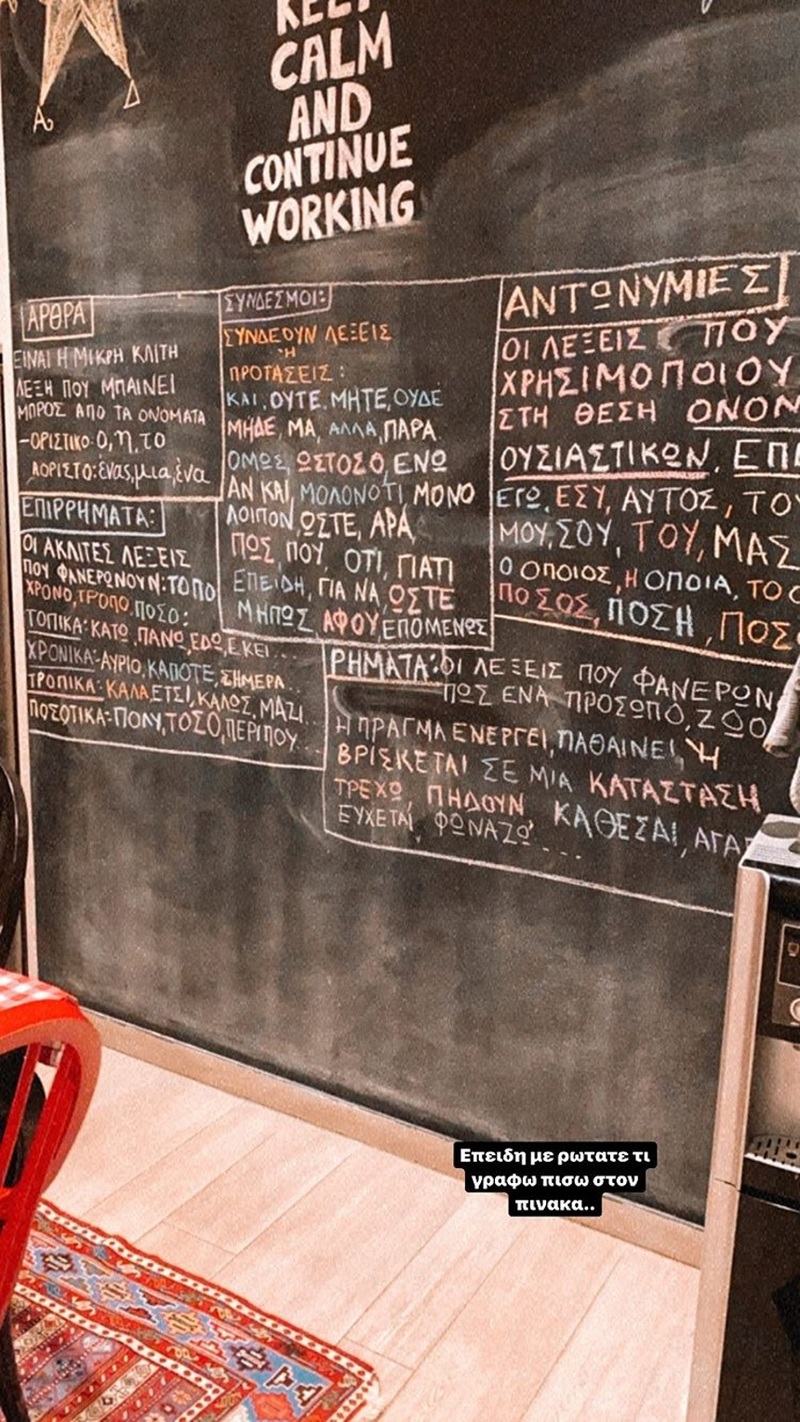 KEEP
CALM
AND
CONTINUE
WORKING
ΑΡΘΡΑ
ΕΙΝΑΙ Η ΜΙΚΡΗ ΚΛΙΤΗ
ΛΕΞΗ ΠΟΥ ΜΠΑΙΝΕΙ
ΜΠΡΟΣ ΑΠΟ ΤΑ ΟΝΟΜΑΤΑ
-ΟΡΙΣΤΙΚΟ: Ο, η, το
ΑΟΡΙΣΤΟ: ένας, μια, ένα
ΕΠΙΡΡΗΜΑΤΑ:
ΟΙ ΑΚΛΙΤΕΣ ΛΕΞΕΙΣ
ΠΟΥ ΦΑΝΕΡΩΝΟΥΝ: ΤΟΠΟ
ΧΡΟΝΟ, ΤΡΟΠΟ, ΠΟΣΟ:
ΤΟΠΙΚΑ: ΚΑΤΩ, ΠΑΝΩ, ΕΔΩ, ΕΚΕΙ...
ΧΡΟΝΙΚΑ: ΑΥΡΙΟ, ΚΑΠΟΤΕ, ΣΗΜΕΡΑ..
ΤΡΟΠΙΚΑ: ΚΑΛΑ, ΕΤΣΙ, ΚΑΛΩΣ, ΜΑΖΙ...
ΠΟΣΟΤΙΚΑ: ΠΟΛΥ, ΤΟΣΟ, ΠΕΡΙΠΟΥ...
ΣΥΝΔΕΣΜΟΙ:
ΣΥΝΔΕΟΥΝ ΛΕΞΕΙΣ
Ή
ΠΡΟΤΑΣΕΙΣ:
ΚΑΙ, ΟΥΤΕ, ΜΗΤΕ, ΟΥΔΕ
ΜΗΔΕ, ΜΑ, ΑΛΛΑ, ΠΑΡΑ
ΟΜΩΣ, ΩΣΤΟΣΟ, ΕΝΩ
ΑΝ ΚΑΙ, ΜΟΛΟΝΟΤΙ, ΜΟΝΟ
ΛΟΙΠΟΝ, ΩΣΤΕ, ΑΡΑ,
ΠΩΣ, ΠΟΥ, ΟΤΙ, ΓΙΑΤΙ
ΕΠΕΙΔΗ, ΓΙΑ ΝΑ, ΩΣΤΕ
ΜΗΠΩΣ ΑΦΟΥ, ΕΠΟΜΕΝΩΣ
ΑΝΤΩΝΥΜΙΕΣ
ΟΙ ΛΕΞΕΙΣ ΠΟΥ
ΧΡΗΣΙΜΟΠΟΙΟΥ
ΣΤΗ ΘΕΣΗ ΟΝΟΜ
ΟΥΣΙΑΣΤΙΚΩΝ, ΕΠΙ
ΕΓΩ, ΕΣΥ, ΑΥΤΟΣ, ΤΟΥ
ΜΟΥ, ΣΟΥ, ΤΟΥ, ΜΑΣ
Ο ΟΠΟΙΟΣ, Η ΟΠΟΙΑ, ΤΟ Ο
ΠΟΣΟΣ, ΠΟΣΗ, ΠΟΣ
ΡΗΜΑΤΑ: ΟΙ ΛΕΞΕΙΣ ΠΟΥ ΦΑΝΕΡΩΝ
ΠΩΣ ΕΝΑ ΠΡΟΣΩΠΟ, ΖΩΟ
Η ΠΡΑΓΜΑ ΕΝΕΡΓΕΙ, ΠΑΘΑΙΝΕΙ, Ή
ΒΡΙΣΚΕΤΑΙ ΣΕ ΜΙΑ ΚΑΤΑΣΤΑΣΗ
ΤΡΕΧΩ, ΠΗΔΟΥΝ ΚΑΘΕΣΑΙ, ΑΓΑΠ
ΕΥΧΕΤΑΙ, ΦΩΝΑΖΩ....
Επειδη με ρωτατε τι
γραφω πισω στον
πινακα..